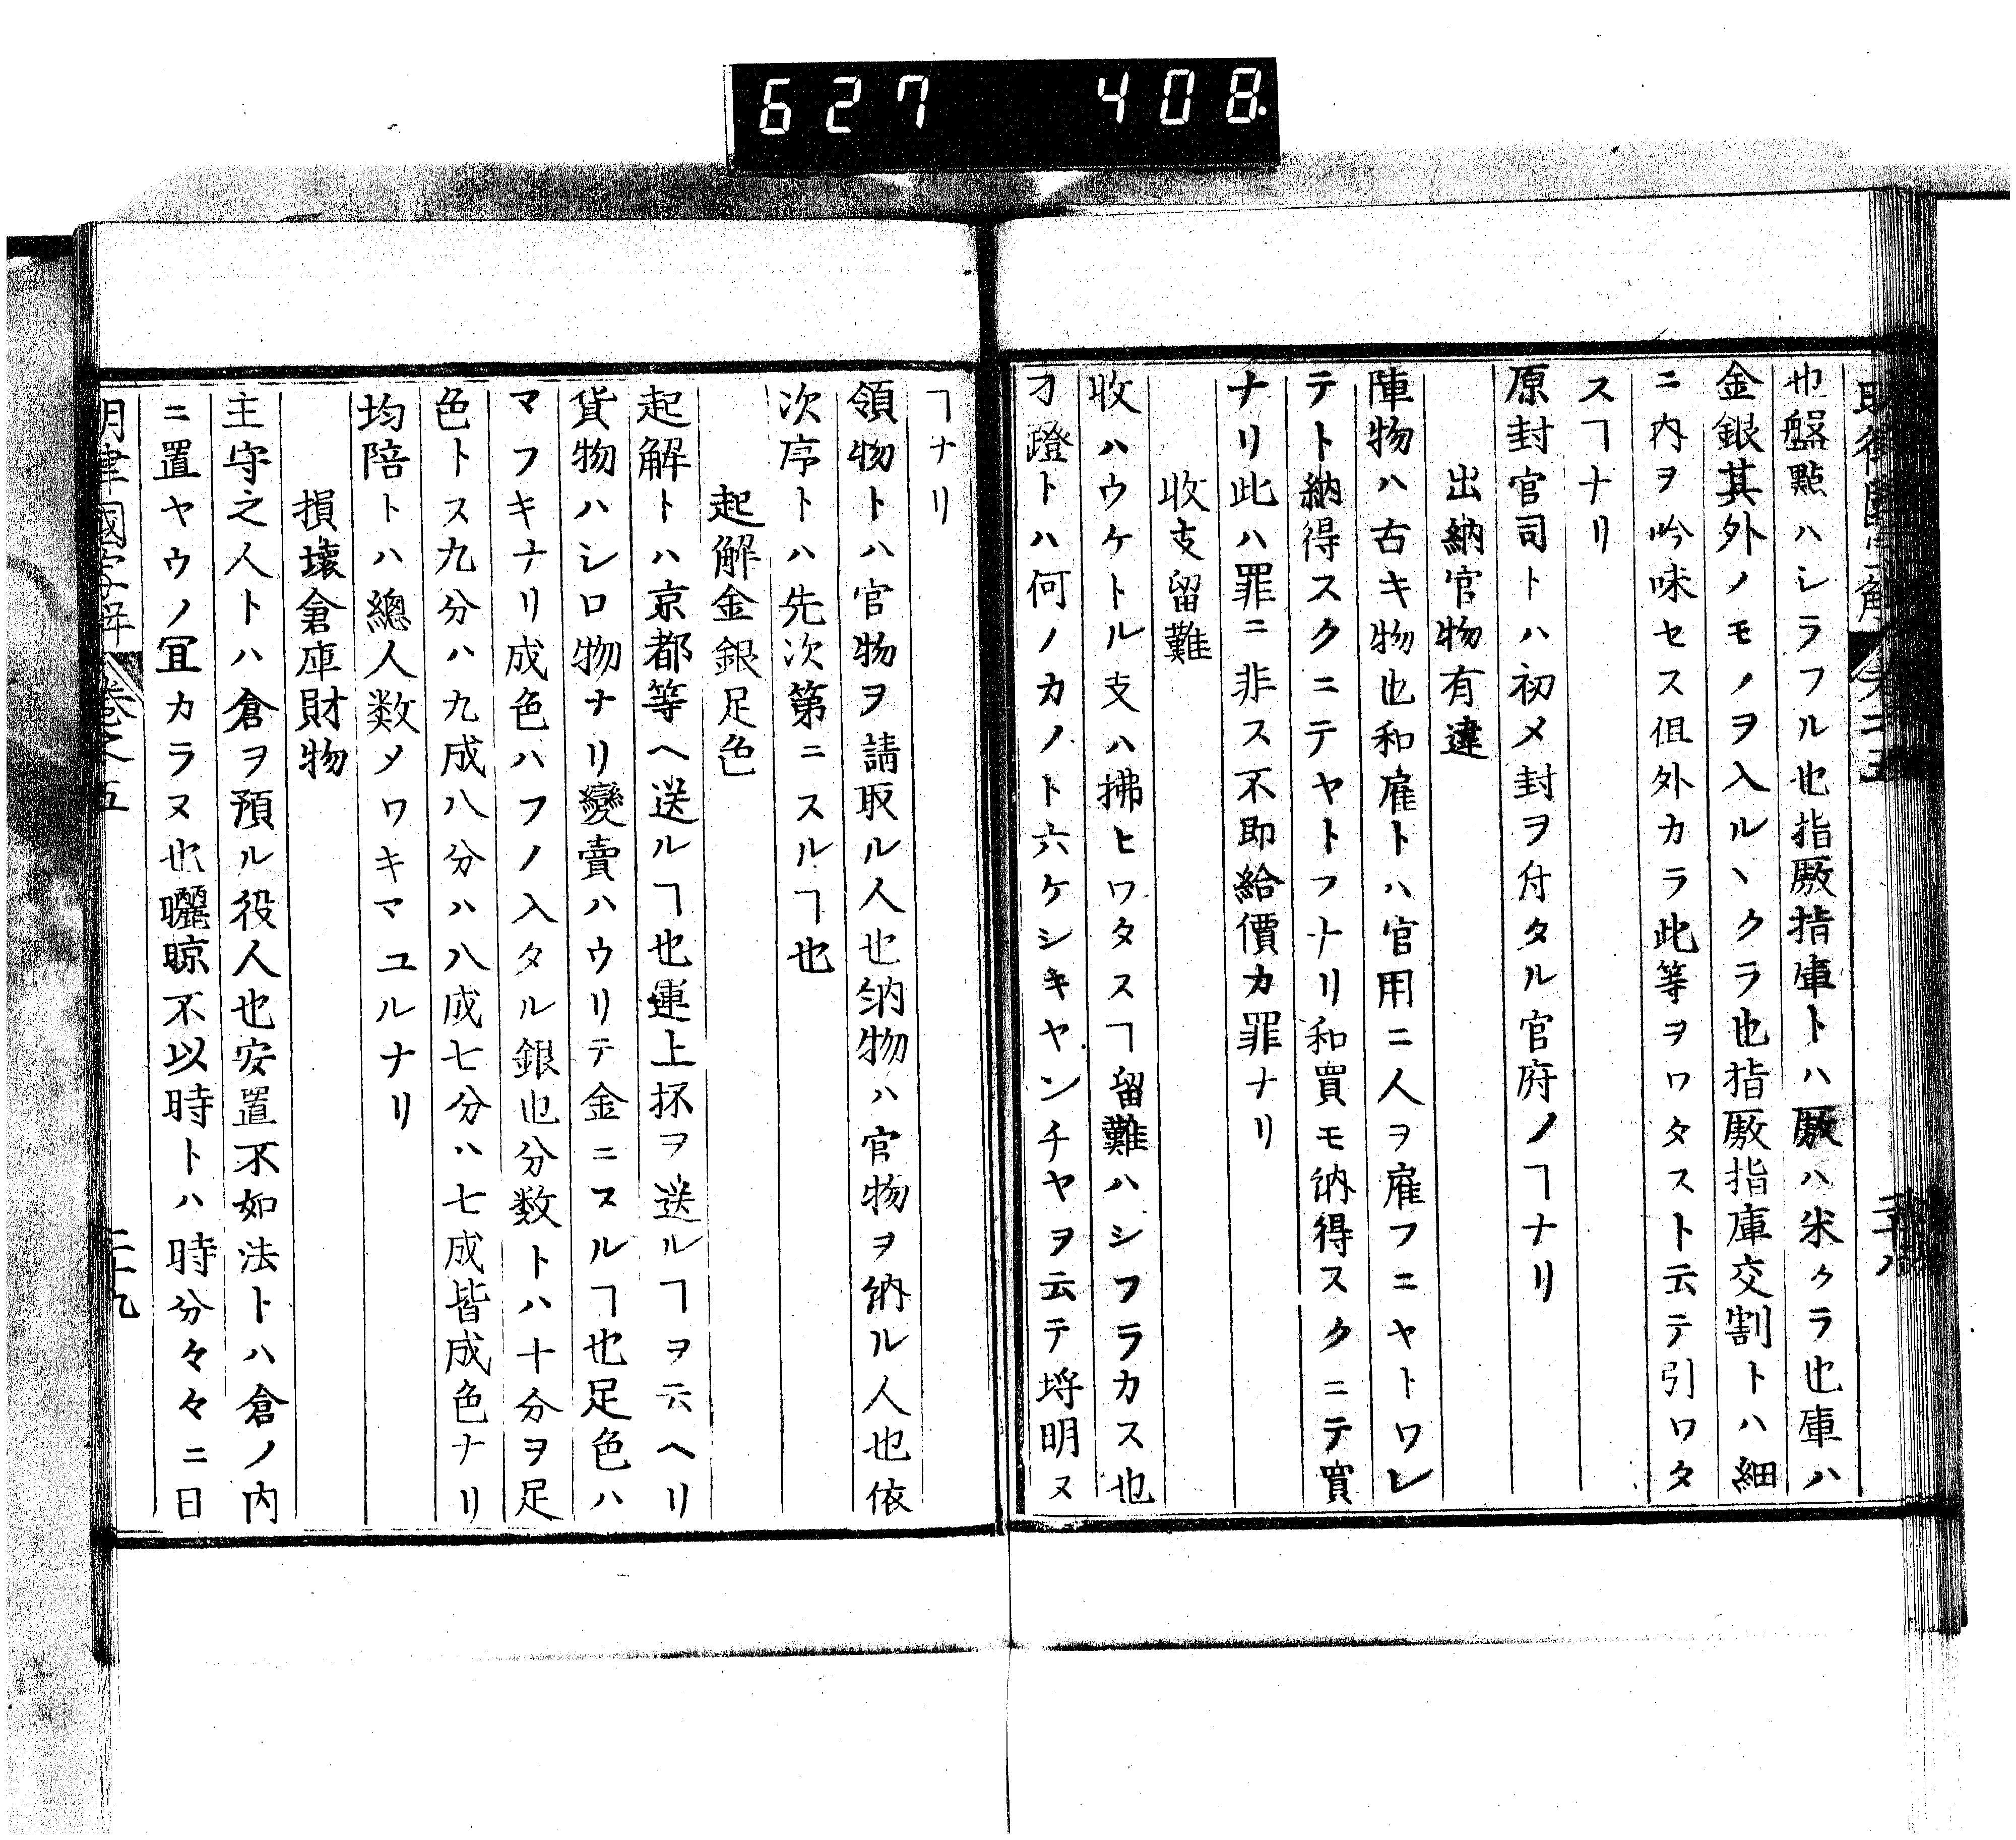 627 408
也盤點ハシラフル也指厫指庫トハ厫ハ米クラ也庫ハ
金銀其外ノモノヲ入ルヽクラ也指厫指庫交割トハ細
ニ内ヲ吟味セス但外カラ此等ヲワタスト云テ引ワタ
スヿナリ
原封官司トハ初メ封ヲ付タル官府ノヿナリ
出納官物有違
陣物ハ古キ物也和雇トハ官用ニ人ヲ雇フニヤトワレ
テト納得スクニテヤトフナリ和買モ納得スクニテ買
ナリ此ハ罪ニ非ス不即給價カ罪ナリ
收支留難
收ハウケトル支ハ拂ヒワタスヿ留難ハシフラカス也
オ證トハ何ノカノト六ケシキヤンチヤヲ云テ埒明ヌ
ヿナリ
領物トハ官物ヲ請取ル人也納物ハ官物ヲ納ル人也依
次序トハ先次第ニスルヿ也
起解金銀足色
起解トハ京都等ヘ送ルヿ也運上抔ヲ送ルヿヲ云ヘリ
貨物ハシロ物ナリ變賣ハウリテ金ニスルヿ也足色ハ
マフキナリ成色ハフノ入タル銀也分数トハ十分ヲ足
色トス九分ハ九成八分ハ八成七分ハ七成皆成色ナリ
均陪トハ總人数メワキマユルナリ
損壞倉庫財物
主守之人トハ倉ヲ預ル役人也安置不如法トハ倉ノ内
ニ置ヤウノ冝カラヌ也曬晾不以時トハ時分々々ニ日
明律國字解 卷之五 二十九